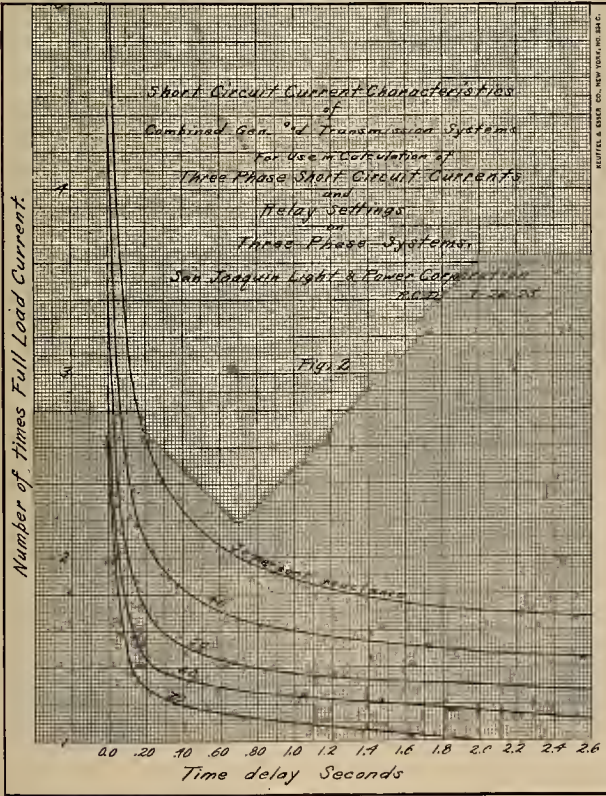 KEUFFEL & ESSER CO., NEW YORK, NO. 334 C.
Short Circuit Current Characteristics
of
Combined Gen. and Transmission Systems
For Use in Calculation of
Three Phase Short Circuit Currents
and
Relay Settings
on
Three Phase Systems.
San Joaquin Light & Power Corporation
Fig. 2
Number of times Full Load Current.
4
3
2
reactance
0.0 .20 .40 .60 .80 1.0 1.2 1.4 1.6 1.8 2.0 2.2 2.4 2.6
Time delay Seconds